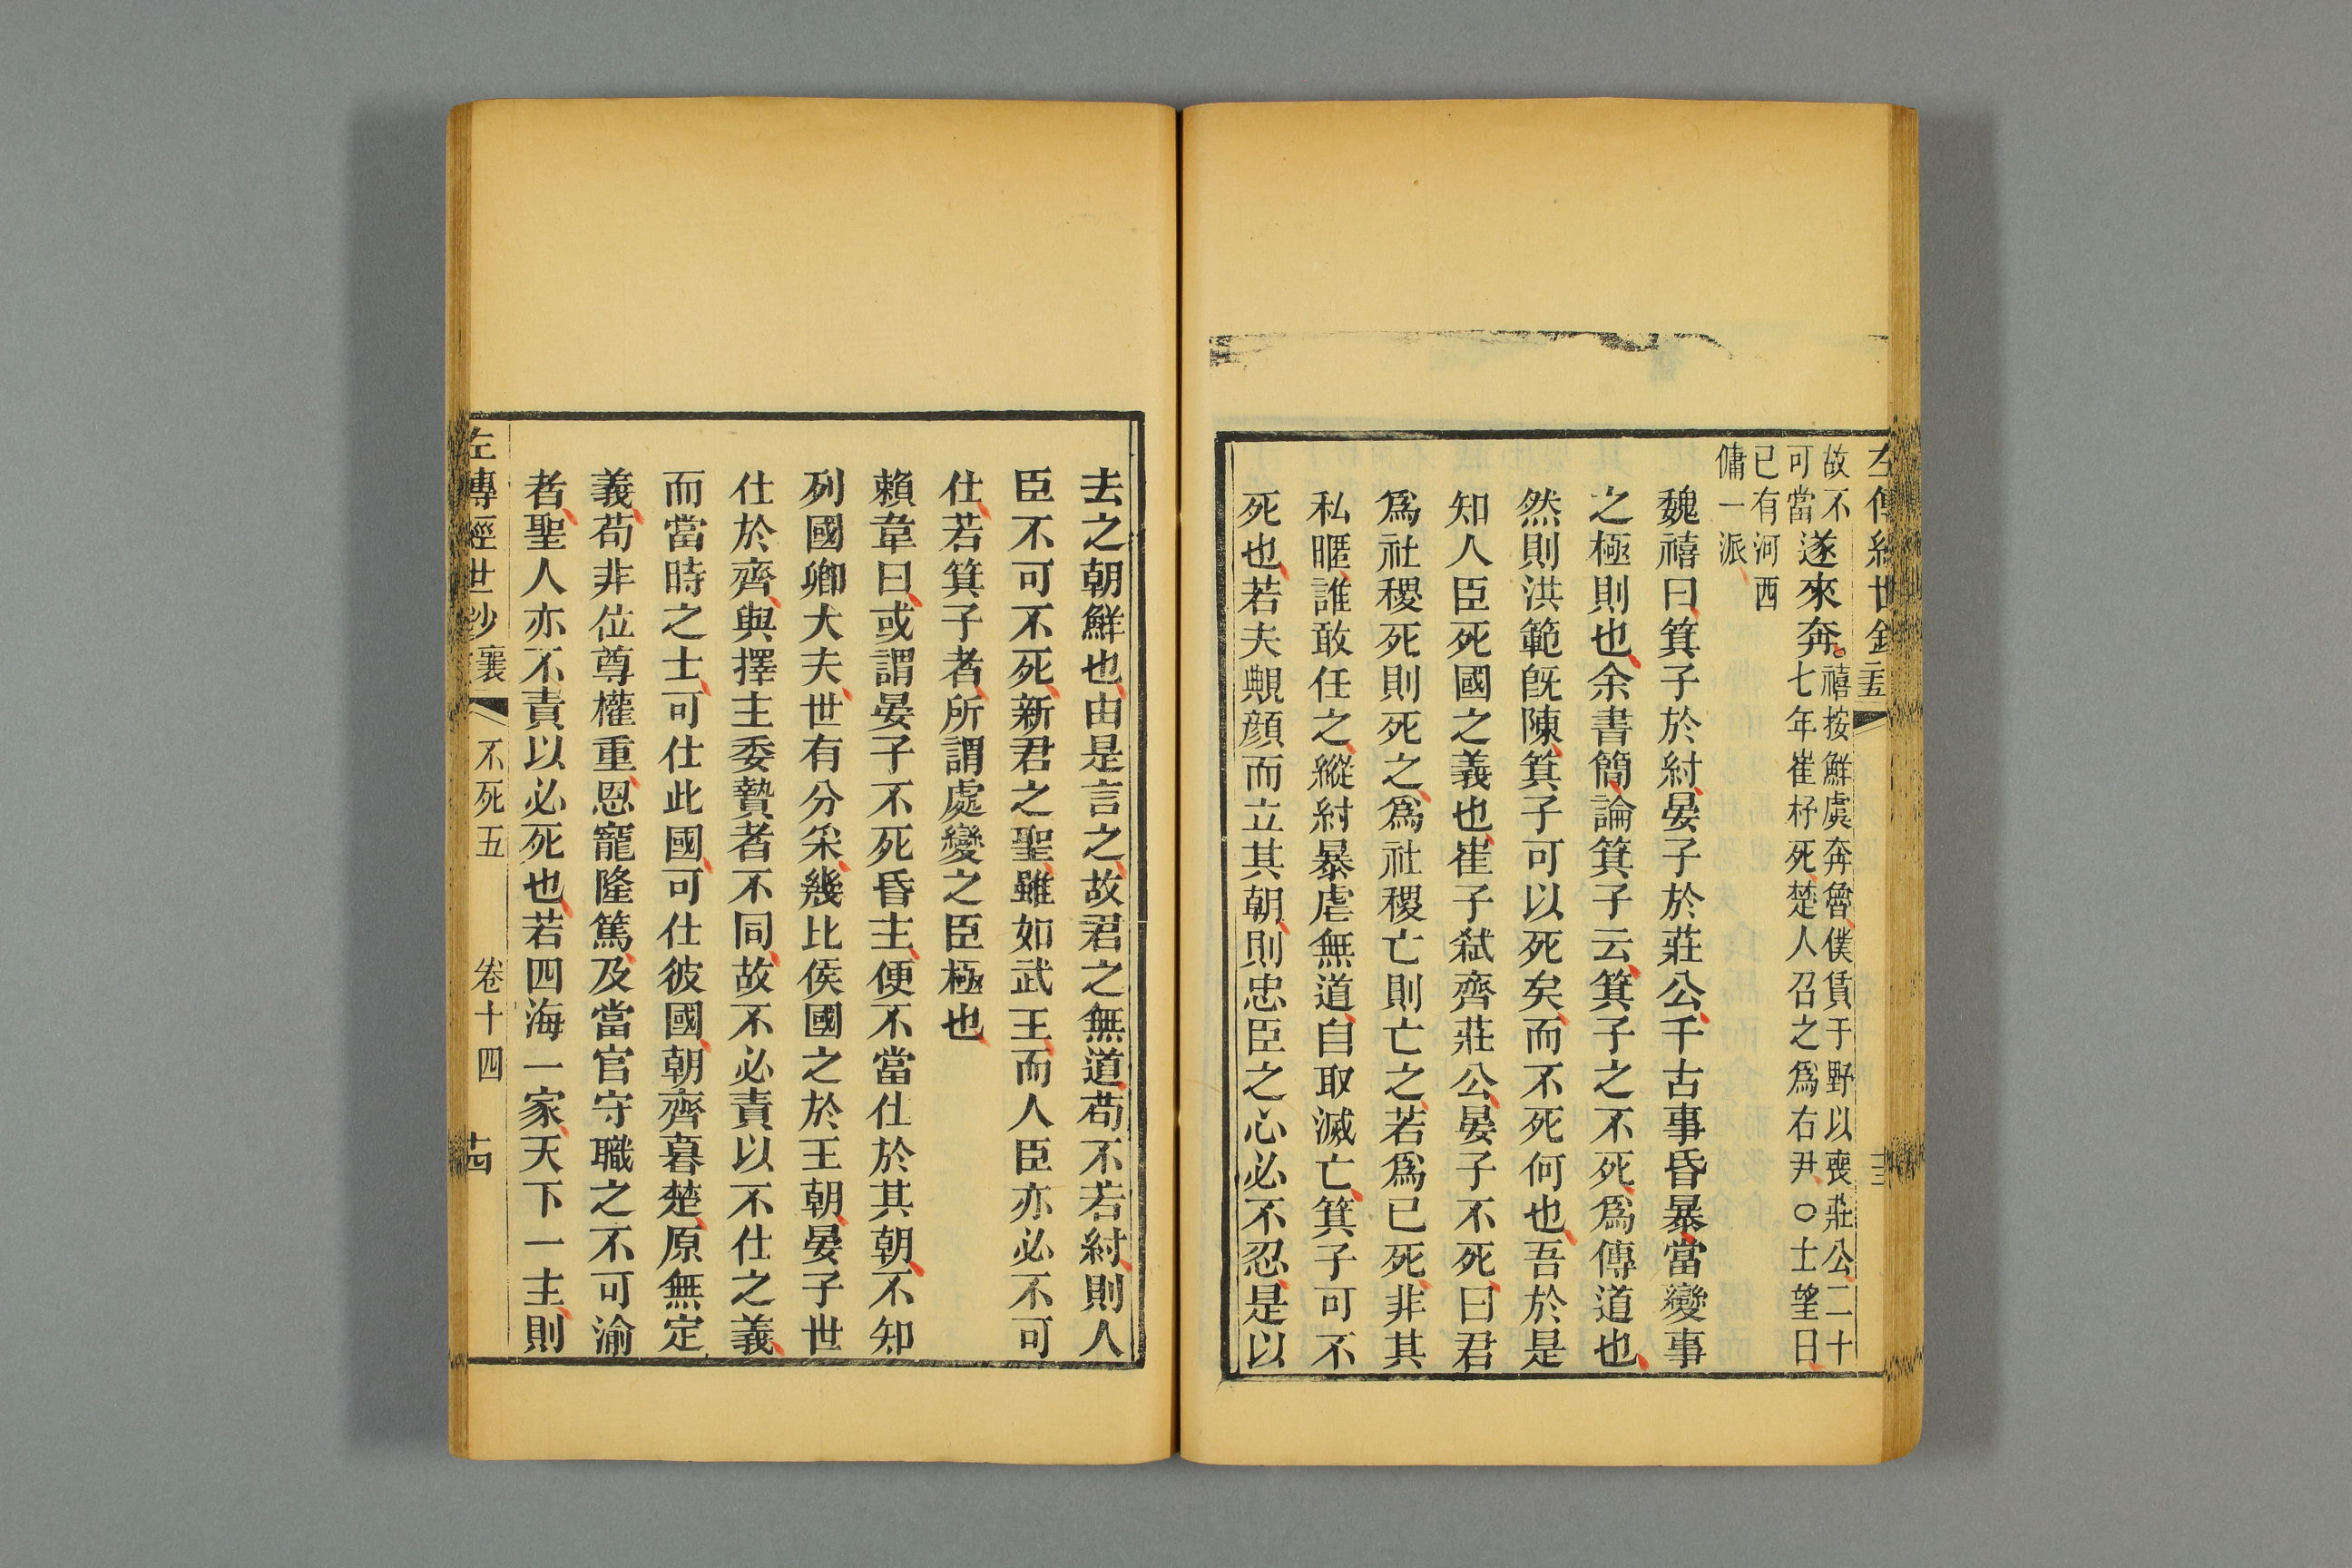 左傳經世鈔
故不
可當
遂來奔
禧按鮮虞奔魯僕賃于野以喪莊公二十
七年崔杼死楚人召之爲右尹○士望曰
已有河西
傭一派
魏禧曰箕子於紂晏子於莊公千古事昏暴當變事
之極則也余書簡論箕子云箕子之不死爲傳道也
然則洪範旣陳箕子可以死矣而不死何也吾於是
知人臣死國之義也崔子弑齊莊公晏子不死曰君
爲社稷死則死之爲社稷亡則亡之若爲已死非其
私暱誰敢任之縱紂暴虐無道自取滅亡箕子可不
死也若夫覥顔而立其朝則忠臣之心必不忍是以
去之朝鮮也由是言之故君之無道苟不若紂則人
臣不可不死新君之聖雖如武王而人臣亦必不可
仕若箕子者所謂處變之臣極也
賴韋曰或謂晏子不死昏主便不當仕於其朝不知
列國卿大夫世有分采幾比侯國之於王朝晏子世
仕於齊與擇主委贄者不同故不必責以不仕之義
而當時之士可仕此國可仕彼國朝齊暮楚原無定
義苟非位尊權重恩寵隆篤及當官守職之不可渝
者聖人亦不責以必死也若四海一家天下一主則
左傳經世鈔 襄 不死五 卷十四 十四